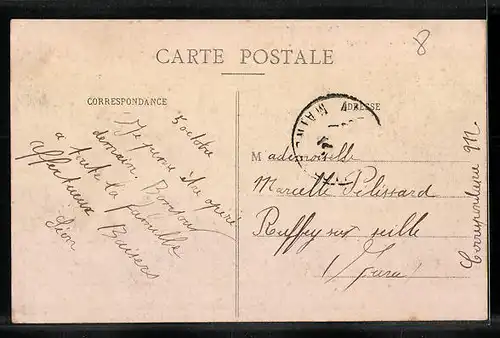 8
CARTE POSTALE
CORRESPONDANCE
ADRESSE
5 octobre
Je pense être opéré
demain. Bonjour
à toute la famille
affectueux Baisers
Léon
Mademoiselle
Marcelle Pélissard
Ruffey sur seille
(Jura)
Correspondance M.